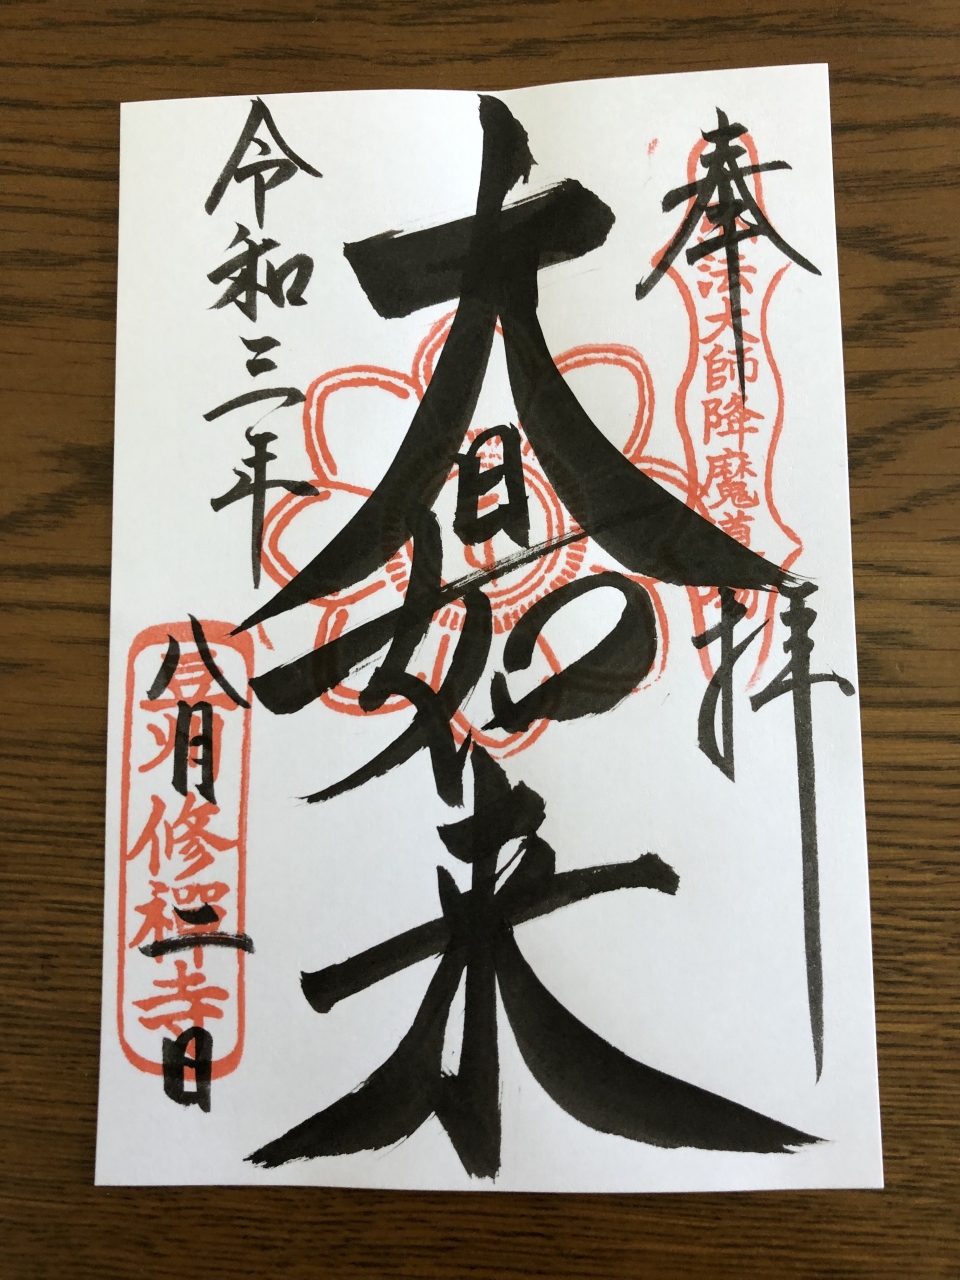 奉拝
法大師降魔
大日如来
令和三年
八月二日
豆州
修禅寺